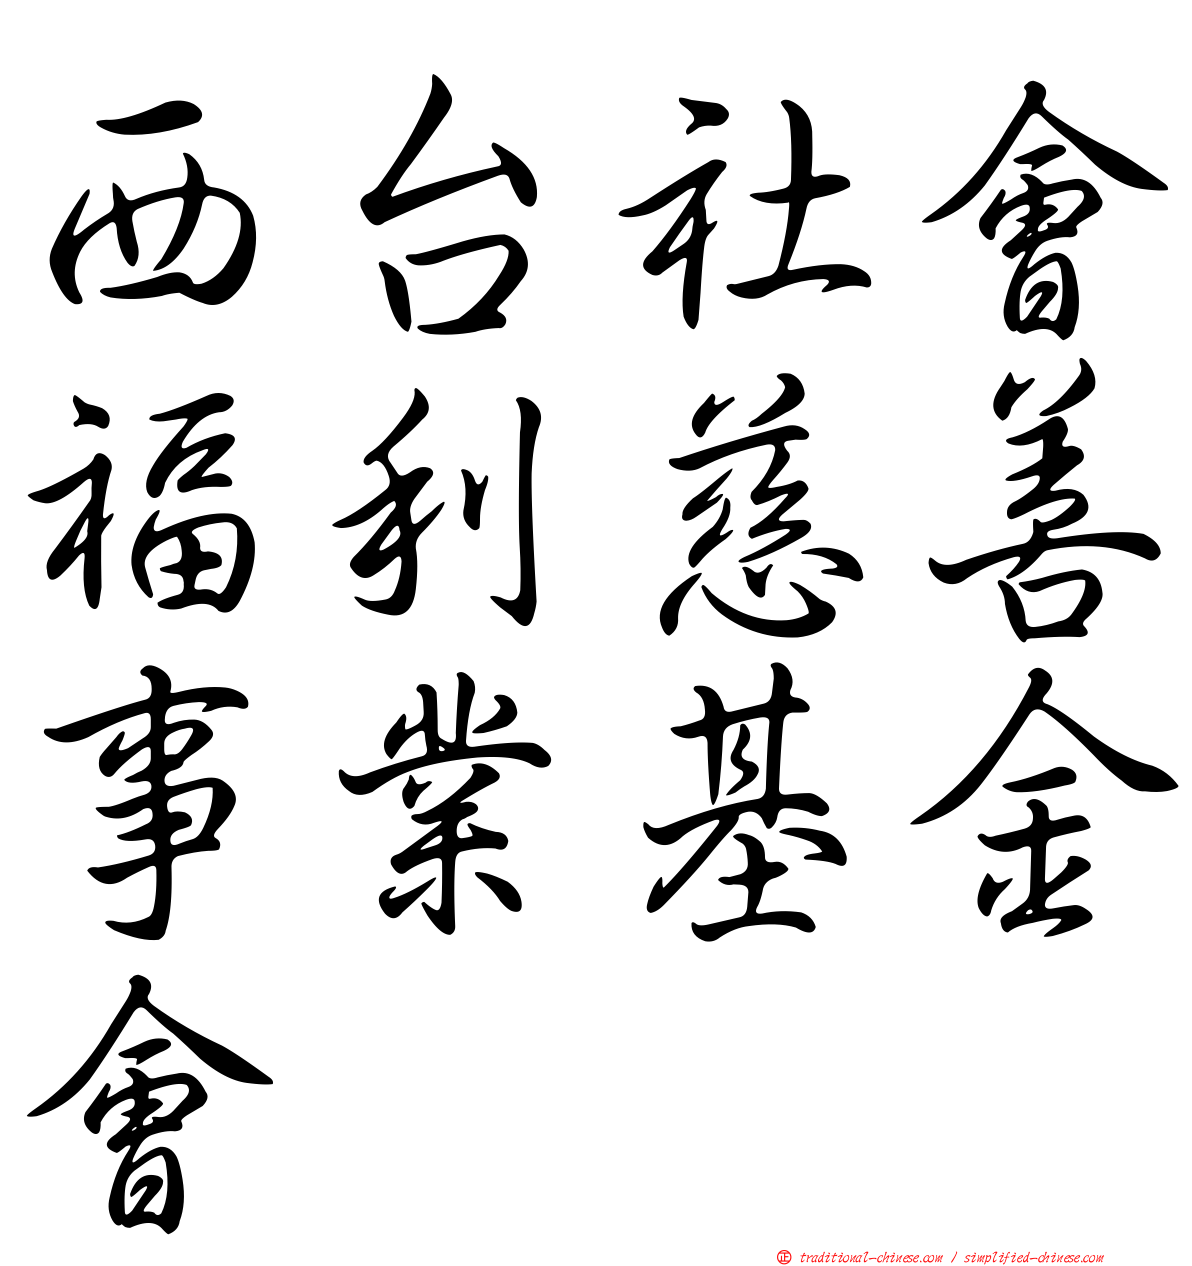 西台社會
福利慈善
事業基金
會
㊣ traditional-chinese.com / simplified-chinese.com